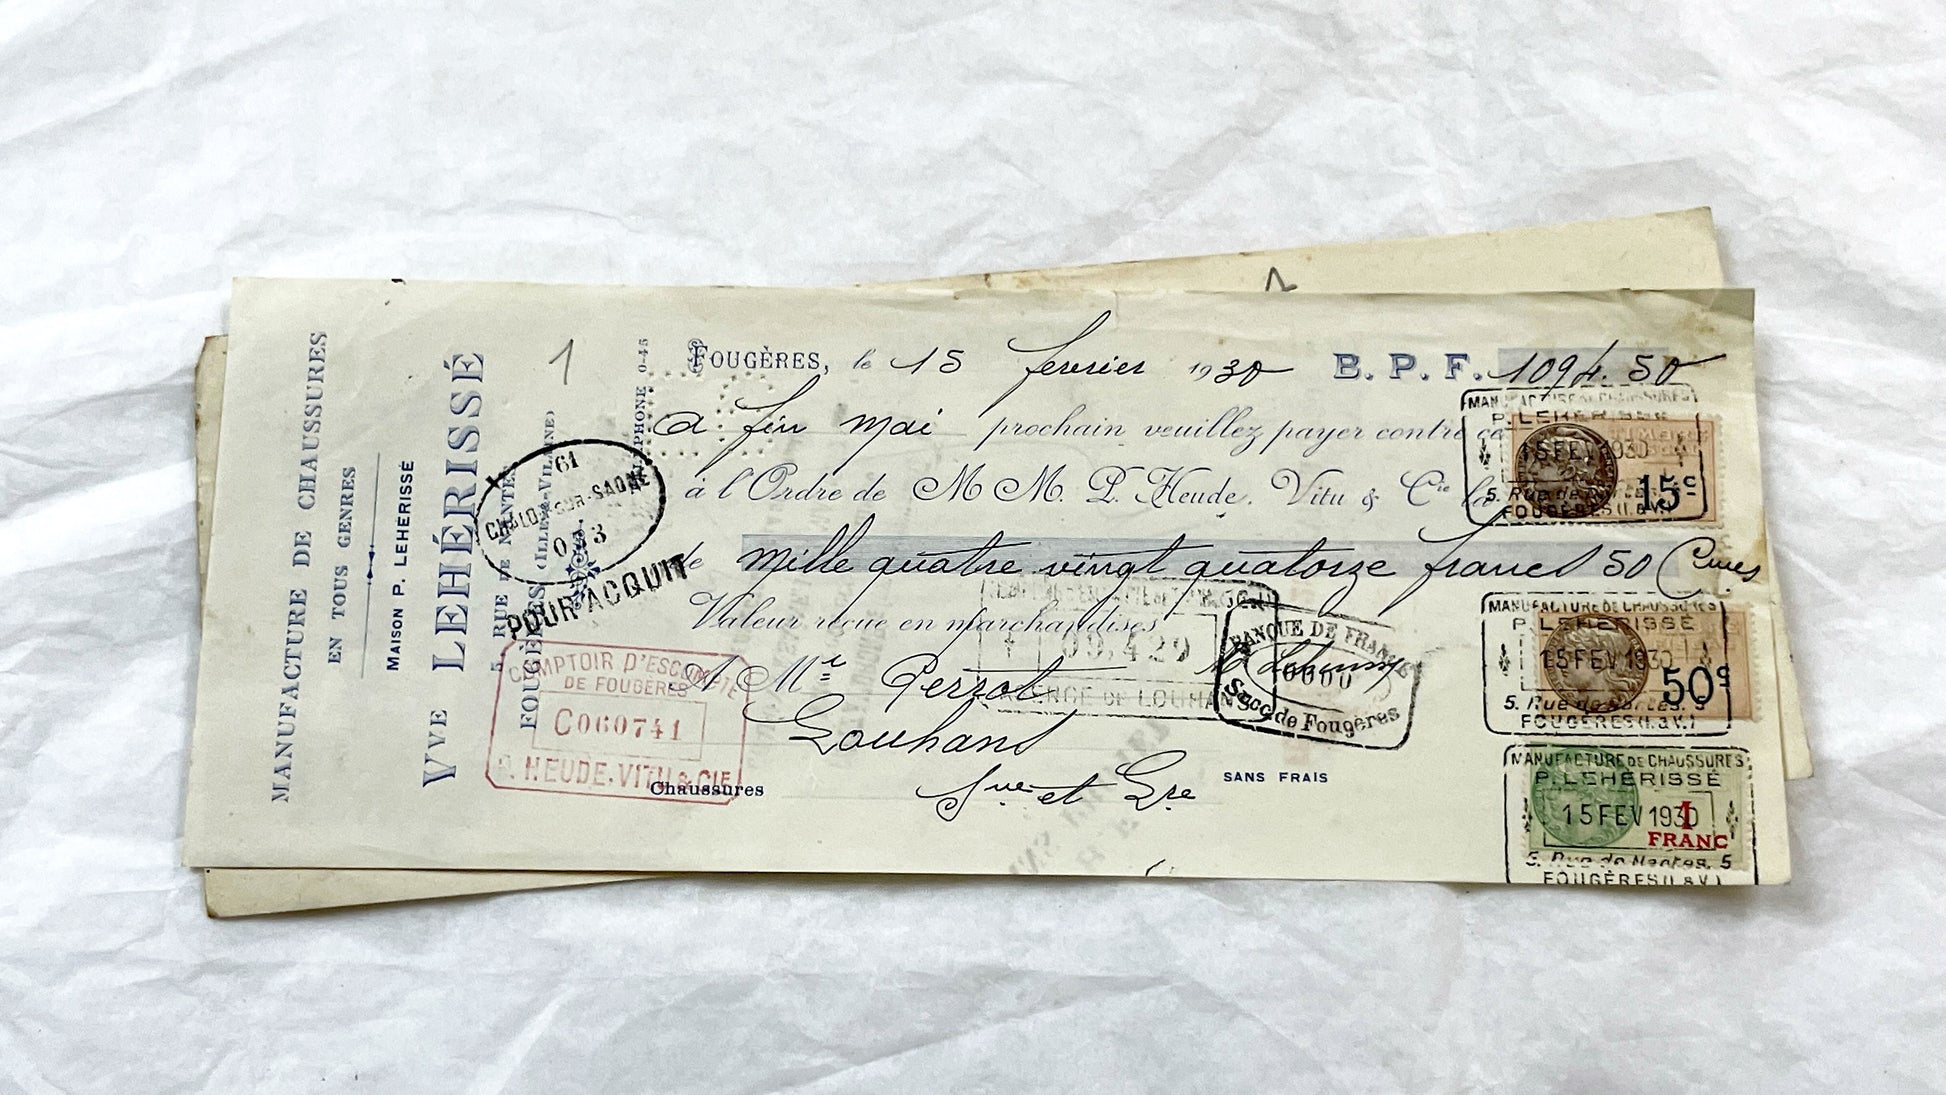 MANUFACTURE DE CHAUSSURES
EN TOUS GENRES
MAISON P. LEHERISSÉ
VVE LEHÉRISSÉ
5, RUE DE NANTES
FOUGÈRES (ILLE-&-VILAINE)
TÉLÉPHONE 0-45
1
FOUGÈRES, le 15 fevrier 1930 B. P. F. 1094.50
a fin mai prochain veuillez payer contre ce
à l'Ordre de M M. P. Heude, Vitu & Cie la
de mille quatre vingt quatorze francs 50 Cmes
Valeur reçue en marchandises
A Mr Perrot
Louhans
Sne et Lre
Chaussures
SANS FRAIS
61
CHALON-SUR-SAONE
POUR ACQUIT
COMPTOIR D'ESCOMPTE
DE FOUGÈRES
C060741
P. HEUDE, VITU & CIE
09,429
AGENCE DE LOUHANS
BANQUE DE FRANCE
0000
Succ de Fougères
MANUFACTURE DE CHAUSSURES
P. LEHERISSÉ
15 FEV 1930
15c
5. Rue de Nantes. 5
FOUGÈRES (I. & V.)
MANUFACTURE DE CHAUSSURES
P. LEHERISSÉ
15 FEV 1930
50c
5. Rue de Nantes. 5
FOUGÈRES (I. & V.)
MANUFACTURE DE CHAUSSURES
P. LEHERISSÉ
15 FEV 1930
1
FRANC
5. Rue de Nantes. 5
FOUGÈRES (I. & V.)